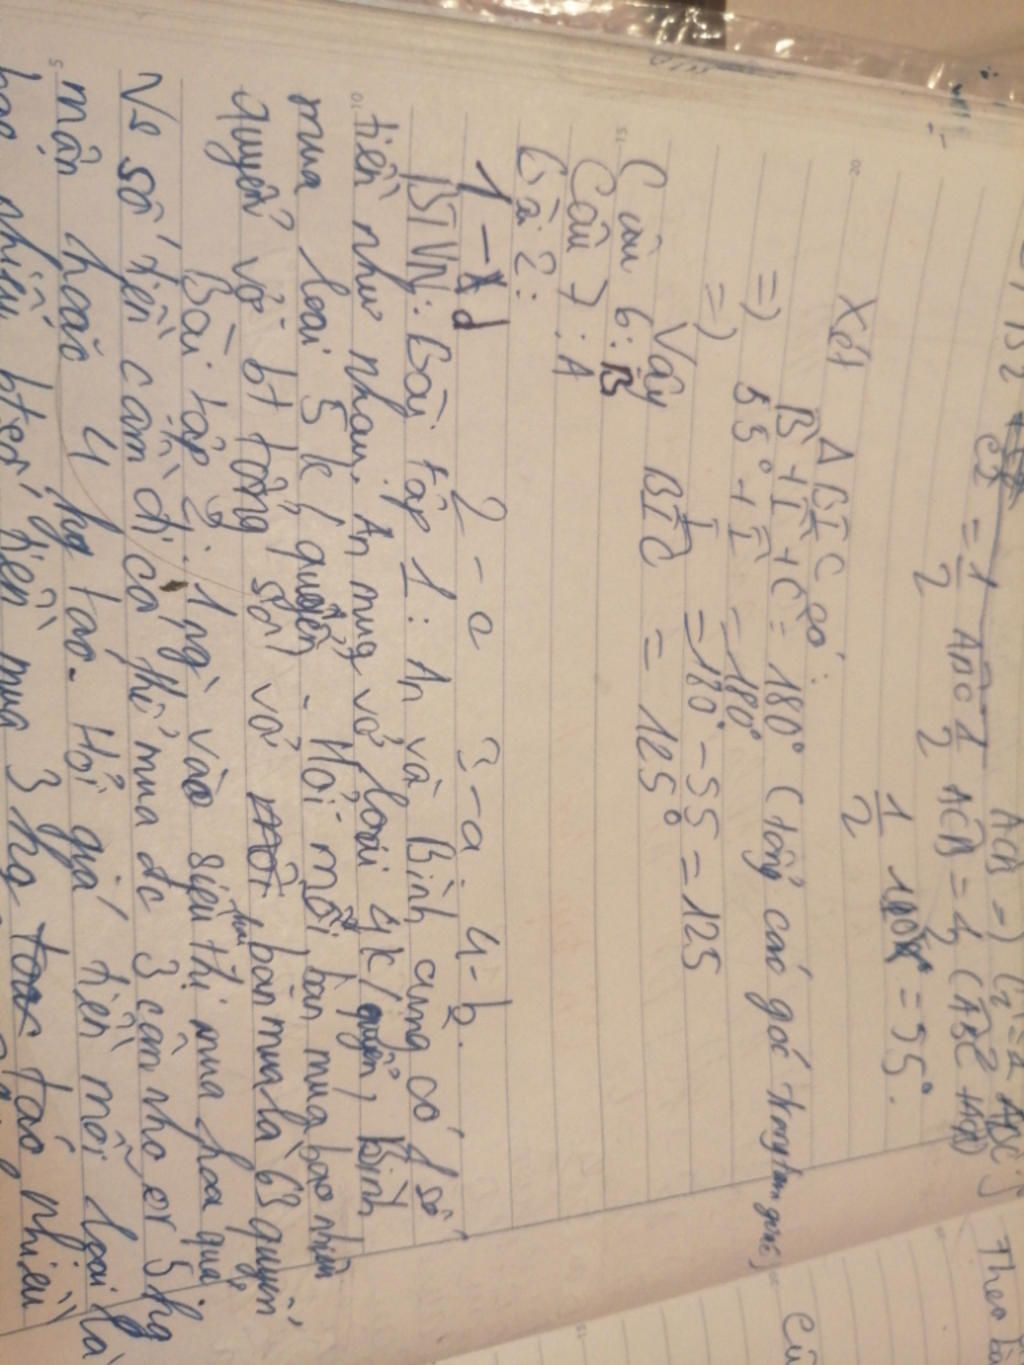 = 1/2 ABC + 1/2 ACB = 1/2 (ABC + ACB)
1/2 110° = 55°.
Xét Δ BIC có:
=) B + I + C = 180° (tổng các góc trong tam giác)
=) 55° + I = 180°
I = 180° - 55 = 125
Vậy BIC = 125°
Câu 6: B
Câu 7: A
Bài 2:
1 - d 2 - c 3 - a. 4 - b.
BTVN: Bài tập 1: An và Bình cùng có 1 số
tiền như nhau. An mua vở loại 4k/quyển, Bình
mua loại 5k/quyển. Hỏi mỗi bạn mua bao nhiêu
quyển vở bt tổng số vở hai bạn mua là 63 quyển
Bài tập 2: 1 ng vào siêu thị mua hoa quả
Vs số tiền cầm đi có thể mua đc 3 cân nho or 5 kg
mận hoặc 4 kg táo. Hỏi giá tiền mỗi loại là
bao nhiêu bt số tiền mua 3 kg táo nhiều